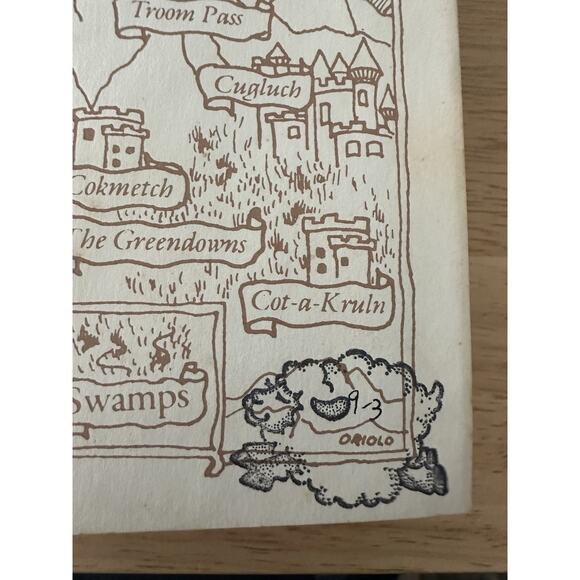 Troom Pass
Cugluch
Cokmetch
The Greendowns
Cot-a-Kruln
Swamps
9-3
ORIOLO